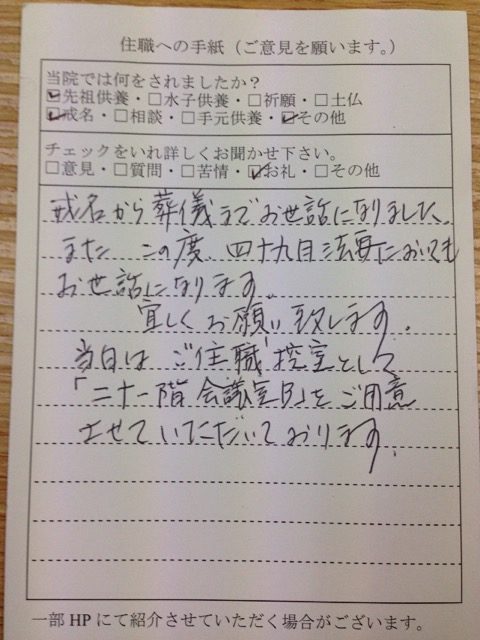 住職への手紙（ご意見を願います。）
当院では何をされましたか？
☑先祖供養・□水子供養・□祈願・□土仏
☑戒名・□相談・□手元供養・☑その他
チェックをいれ詳しくお聞かせ下さい。
□意見・□質問・□苦情・☑お礼・□その他
戒名から葬儀までお世話になりました。
また この度、四十九日法要においても
お世話になります。
宜しくお願い致します。
当日は ご住職控室として
「二十一階 会議室B」をご用意
させていただいております。
一部HPにて紹介させていただく場合がございます。